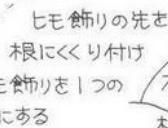 ヒモ飾りの先を
根にくくり付け
モ飾りを1つの
にする